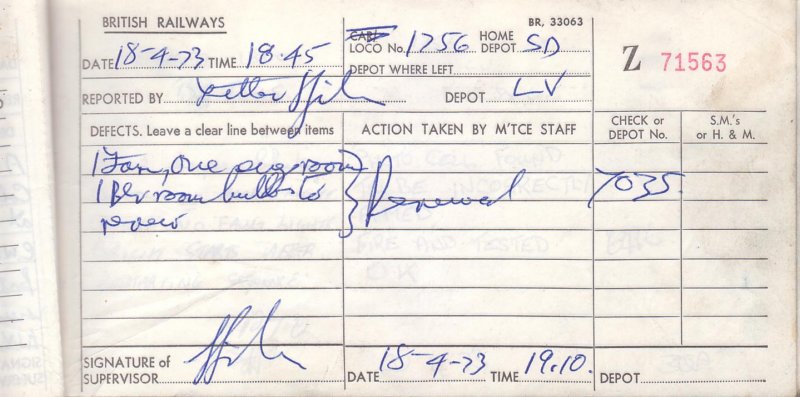 BRITISH RAILWAYS
BR, 33063
DATE 18-4-73 TIME 18.45
CAB/
LOCO No. 1756 HOME DEPOT SD
Z 71563
DEPOT WHERE LEFT
REPORTED BY DEPOT LV
DEFECTS. Leave a clear line between items
ACTION TAKEN BY M'TCE STAFF
CHECK or DEPOT No.
S.M.'s or H. & M.
1 Fan, one eng room
1 Blr room bulbs to
renew
Renewed
7035
SIGNATURE of SUPERVISOR
DATE 18-4-73 TIME 19.10.
DEPOT